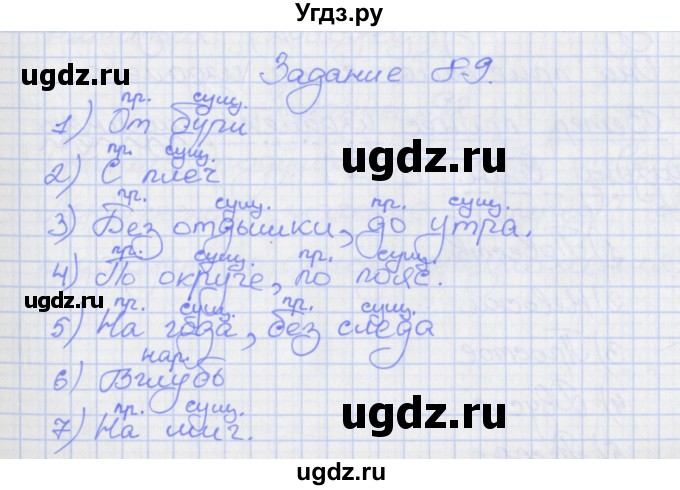 Угдз.ру
Задание 89.
пр. сущ.
1) От бури
пр. сущ.
2) С плеч
пр. сущ. пр. сущ.
3) Без отдышки, до утра.
пр. сущ. пр. сущ.
4) По округе, по пояс.
пр. сущ. пр. сущ.
5) На года, без следа
нар.
6) Вглубь
пр. сущ.
7) На миг.
ugdz.ru
ugdz.ru
ugdz.ru
ugdz.ru
ugdz.ru
ugdz.ru